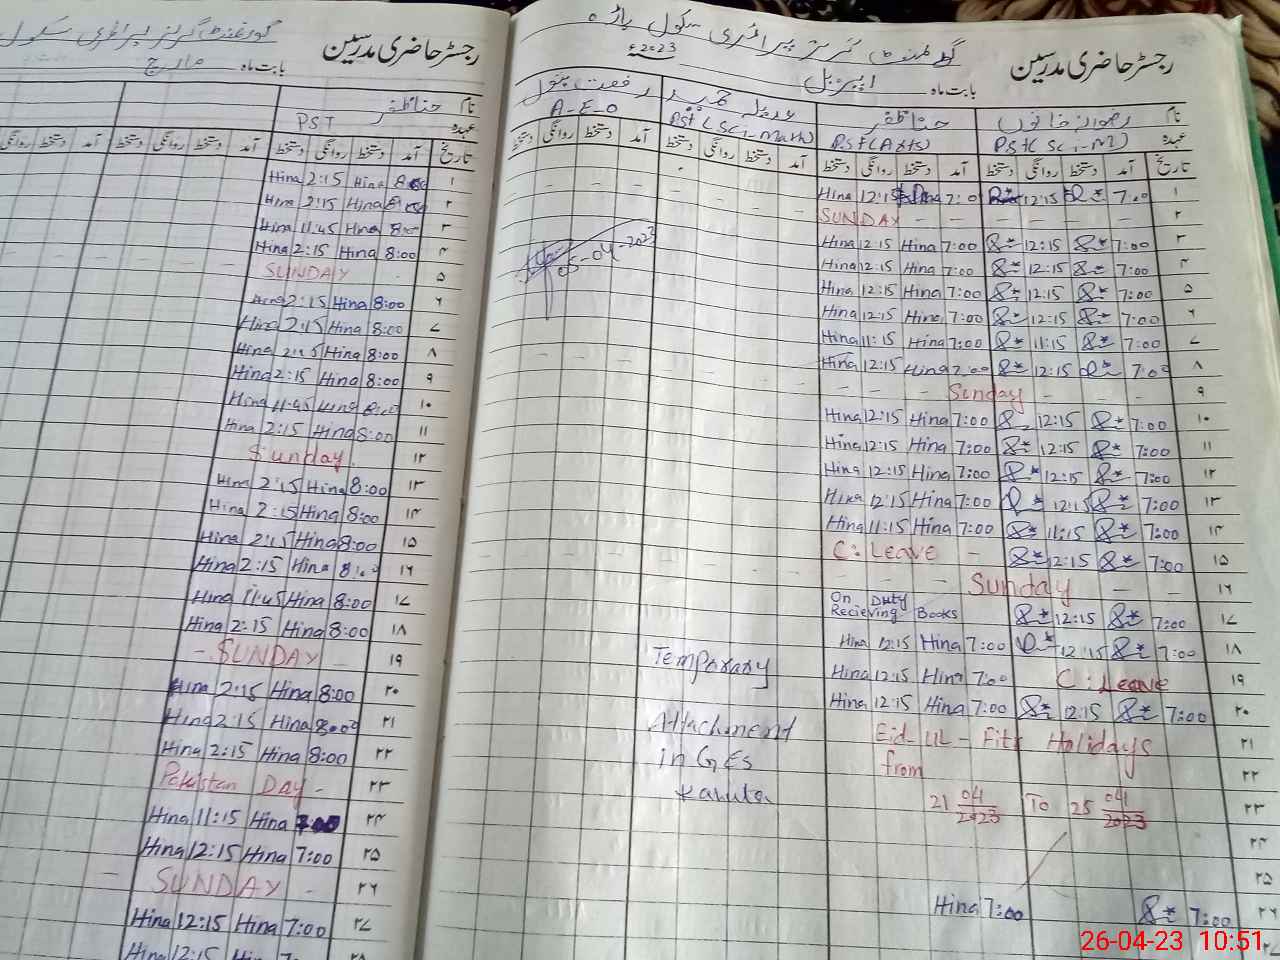 گورنمنٹ گرلز پرائمری سکول
رجسٹر حاضری مدرسین
بابت ماہ مارچ
نام حنا ظفر
عہدہ PST
تاریخ آمد دستخط روانگی دستخط آمد دستخط روانگی دستخط
۱ 8:00 Hina 2:15 Hina
۲ Hina 2:15 Hina
۳ 8:00 Hina 11:45 Hina
۴ 8:00 Hina 2:15 Hina
۵ SUNDAY
۶ 8:00 Hina 2:15 Hina
۷ 8:00 Hina 2:15 Hina
۸ 8:00 Hina 2:15 Hina
۹ 8:00 Hina 2:15 Hina
۱۰ 8:00 Hina 11:45 Hina
۱۱ 8:00 Hina 2:15 Hina
۱۲ Sunday
۱۳ 8:00 Hina 2:15 Hina
۱۴ 8:00 Hina 2:15 Hina
۱۵ 8:00 Hina 2:15 Hina
۱۶ 8:00 Hina 2:15 Hina
۱۷ 8:00 Hina 11:45 Hina
۱۸ 8:00 Hina 2:15 Hina
۱۹ SUNDAY
۲۰ 8:00 Hina 2:15 Hina
۲۱ 8:00 Hina 2:15 Hina
۲۲ 8:00 Hina 2:15 Hina
۲۳ Pakistan DAY
۲۴ Hina 11:15 Hina
۲۵ 7:00 Hina 12:15 Hina
۲۶ SUNDAY
۲۷ 7:00 Hina 12:15 Hina
۲۸ Hina 12:15
گورنمنٹ گرلز پرائمری سکول باڑہ
رجسٹر حاضری مدرسین
بابت ماہ اپریل 2023ء
نام رضوانہ خاتون حنا ظفر عدیلہ حمید رفعت بتول
عہدہ PST (Sci-M) PST (Arts) PST (Sci-Math) A-E-O
تاریخ آمد دستخط روانگی دستخط آمد دستخط روانگی دستخط آمد دستخط روانگی دستخط آمد دستخط روانگی دستخط
۱ 7:00 12:15 7:0 Hina 12:15 Hina
۲ SUNDAY
۳ 7:00 12:15 7:00 Hina 12:15 Hina
۴ 7:00 12:15 7:00 Hina 12:15 Hina
05-04-2023
۵ 7:00 12:15 7:00 Hina 12:15 Hina
۶ 7:00 12:15 7:00 Hina 12:15 Hina
۷ 7:00 11:15 7:00 Hina 11:15 Hina
۸ 7:00 12:15 7:00 Hina 12:15 Hina
۹ Sunday
۱۰ 7:00 12:15 7:00 Hina 12:15 Hina
۱۱ 7:00 12:15 7:00 Hina 12:15 Hina
۱۲ 7:00 12:15 7:00 Hina 12:15 Hina
۱۳ 7:00 12:15 7:00 Hina 12:15 Hina
۱۴ 7:00 11:15 7:00 Hina 11:15 Hina
۱۵ 7:00 12:15 C: Leave
۱۶ Sunday
۱۷ 7:00 12:15 On Duty Recieving Books
۱۸ 7:00 12:15 7:00 Hina 12:15 Hina
۱۹ C: Leave 7:00 Hina 12:15 Hina
۲۰ 7:00 12:15 7:00 Hina 12:15 Hina
Temporary
Attachment
in GES
۲۱ Eid-ul-Fitr Holidays
۲۲ from
۲۳ 21 04 2023 To 25 04 2023
۲۴
۲۵
۲۶ 7:00 Hina 7:00
۲۷
26-04-23 10:51